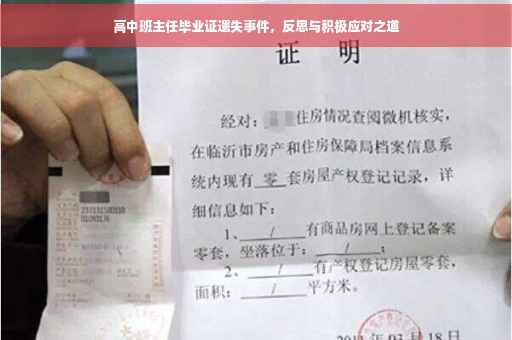 高中班主任毕业证遗失事件，反思与积极应对之道
证 明
经对： 住房情况查阅微机核实，
在临沂市房产和住房保障局档案信息系
统内现有 零 套房屋产权登记记录，详
细信息如下：
1、 / 有商品房网上登记备案
零套，坐落位于： / ；
2、 / 有产权登记房屋零套，
面积： / 平方米。
月 18 日